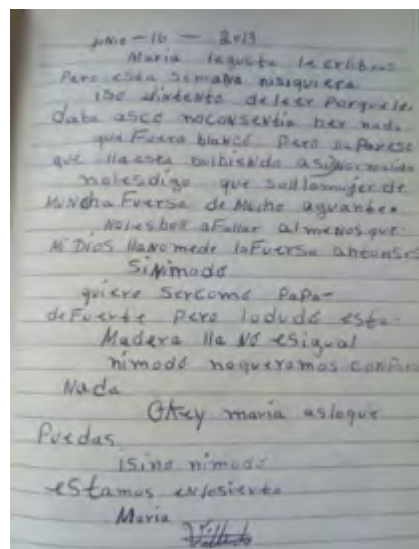 junio-16 - 2013
Maria legusta leerlibros
Pero esta semana nisiquiera
iso elintento deleer porquele
daba asco noconsentia ber nada
que Fuera blanco Pero yaParese
que lla esta bolbiendo asunormalida
nolesdigo que soillamujer de
Muncha Fuersa de Mucho aguante
Nolesboi aFallar almenosque
Mi DIOS lla nomede laFuersa antonse
SiNimodo
quiero sercomo PaPa-
deFuerte Pero lodudo esta-
Madera lla No esigual
nimodo noqueramos
Nada
OKey maria asloque
Puedas
isino nimodo
estamos enlosierto
Maria